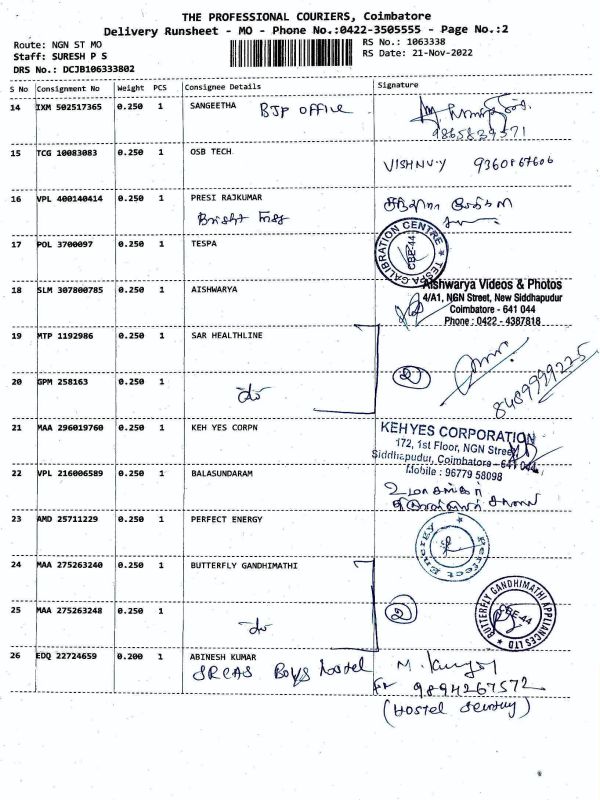 THE PROFESSIONAL COURIERS, Coimbatore
Delivery Runsheet - MO - Phone No.:0422-3505555 - Page No.:2
Route: NGN ST MO
Staff: SURESH P S
DRS No.: DCJB106333802
RS No.: 1063338
RS Date: 21-Nov-2022
S No Consignment No Weight PCS Consignee Details Signature
14 IXM 502517365 0.250 1 SANGEETHA BJP OFFICE
15 TCG 10083083 0.250 1 OSB TECH VISHNU.Y 9360867606
16 VPL 400140414 0.250 1 PRESI RAJKUMAR
17 POL 3700097 0.250 1 TESPA
TESPA CALIBRATION CENTRE
CBE-44
18 SLM 307800785 0.250 1 AISHWARYA
Aishwarya Videos & Photos
4/A1, NGN Street, New Siddhapudur
Coimbatore - 641 044
Phone : 0422 - 4387818
19 MTP 1192986 0.250 1 SAR HEALTHLINE
2
8489999225
20 GPM 258163 0.250 1
21 MAA 296019760 0.250 1 KEH YES CORPN
KEH YES CORPORATION
172, 1st Floor, NGN Street
Siddhapudur, Coimbatore - 641 044
Mobile : 96779 58098
22 VPL 216006589 0.250 1 BALASUNDARAM
23 AMD 25711229 0.250 1 PERFECT ENERGY
Perfect Energy
24 MAA 275263240 0.250 1 BUTTERFLY GANDHIMATHI
2
BUTTERFLY GANDHIMATHI APPLIANCES LTD
CBE-44
25 MAA 275263248 0.250 1
26 EDQ 22724659 0.200 1 ABINESH KUMAR
SRCAS Boys hostel
9894267572
(Hostel